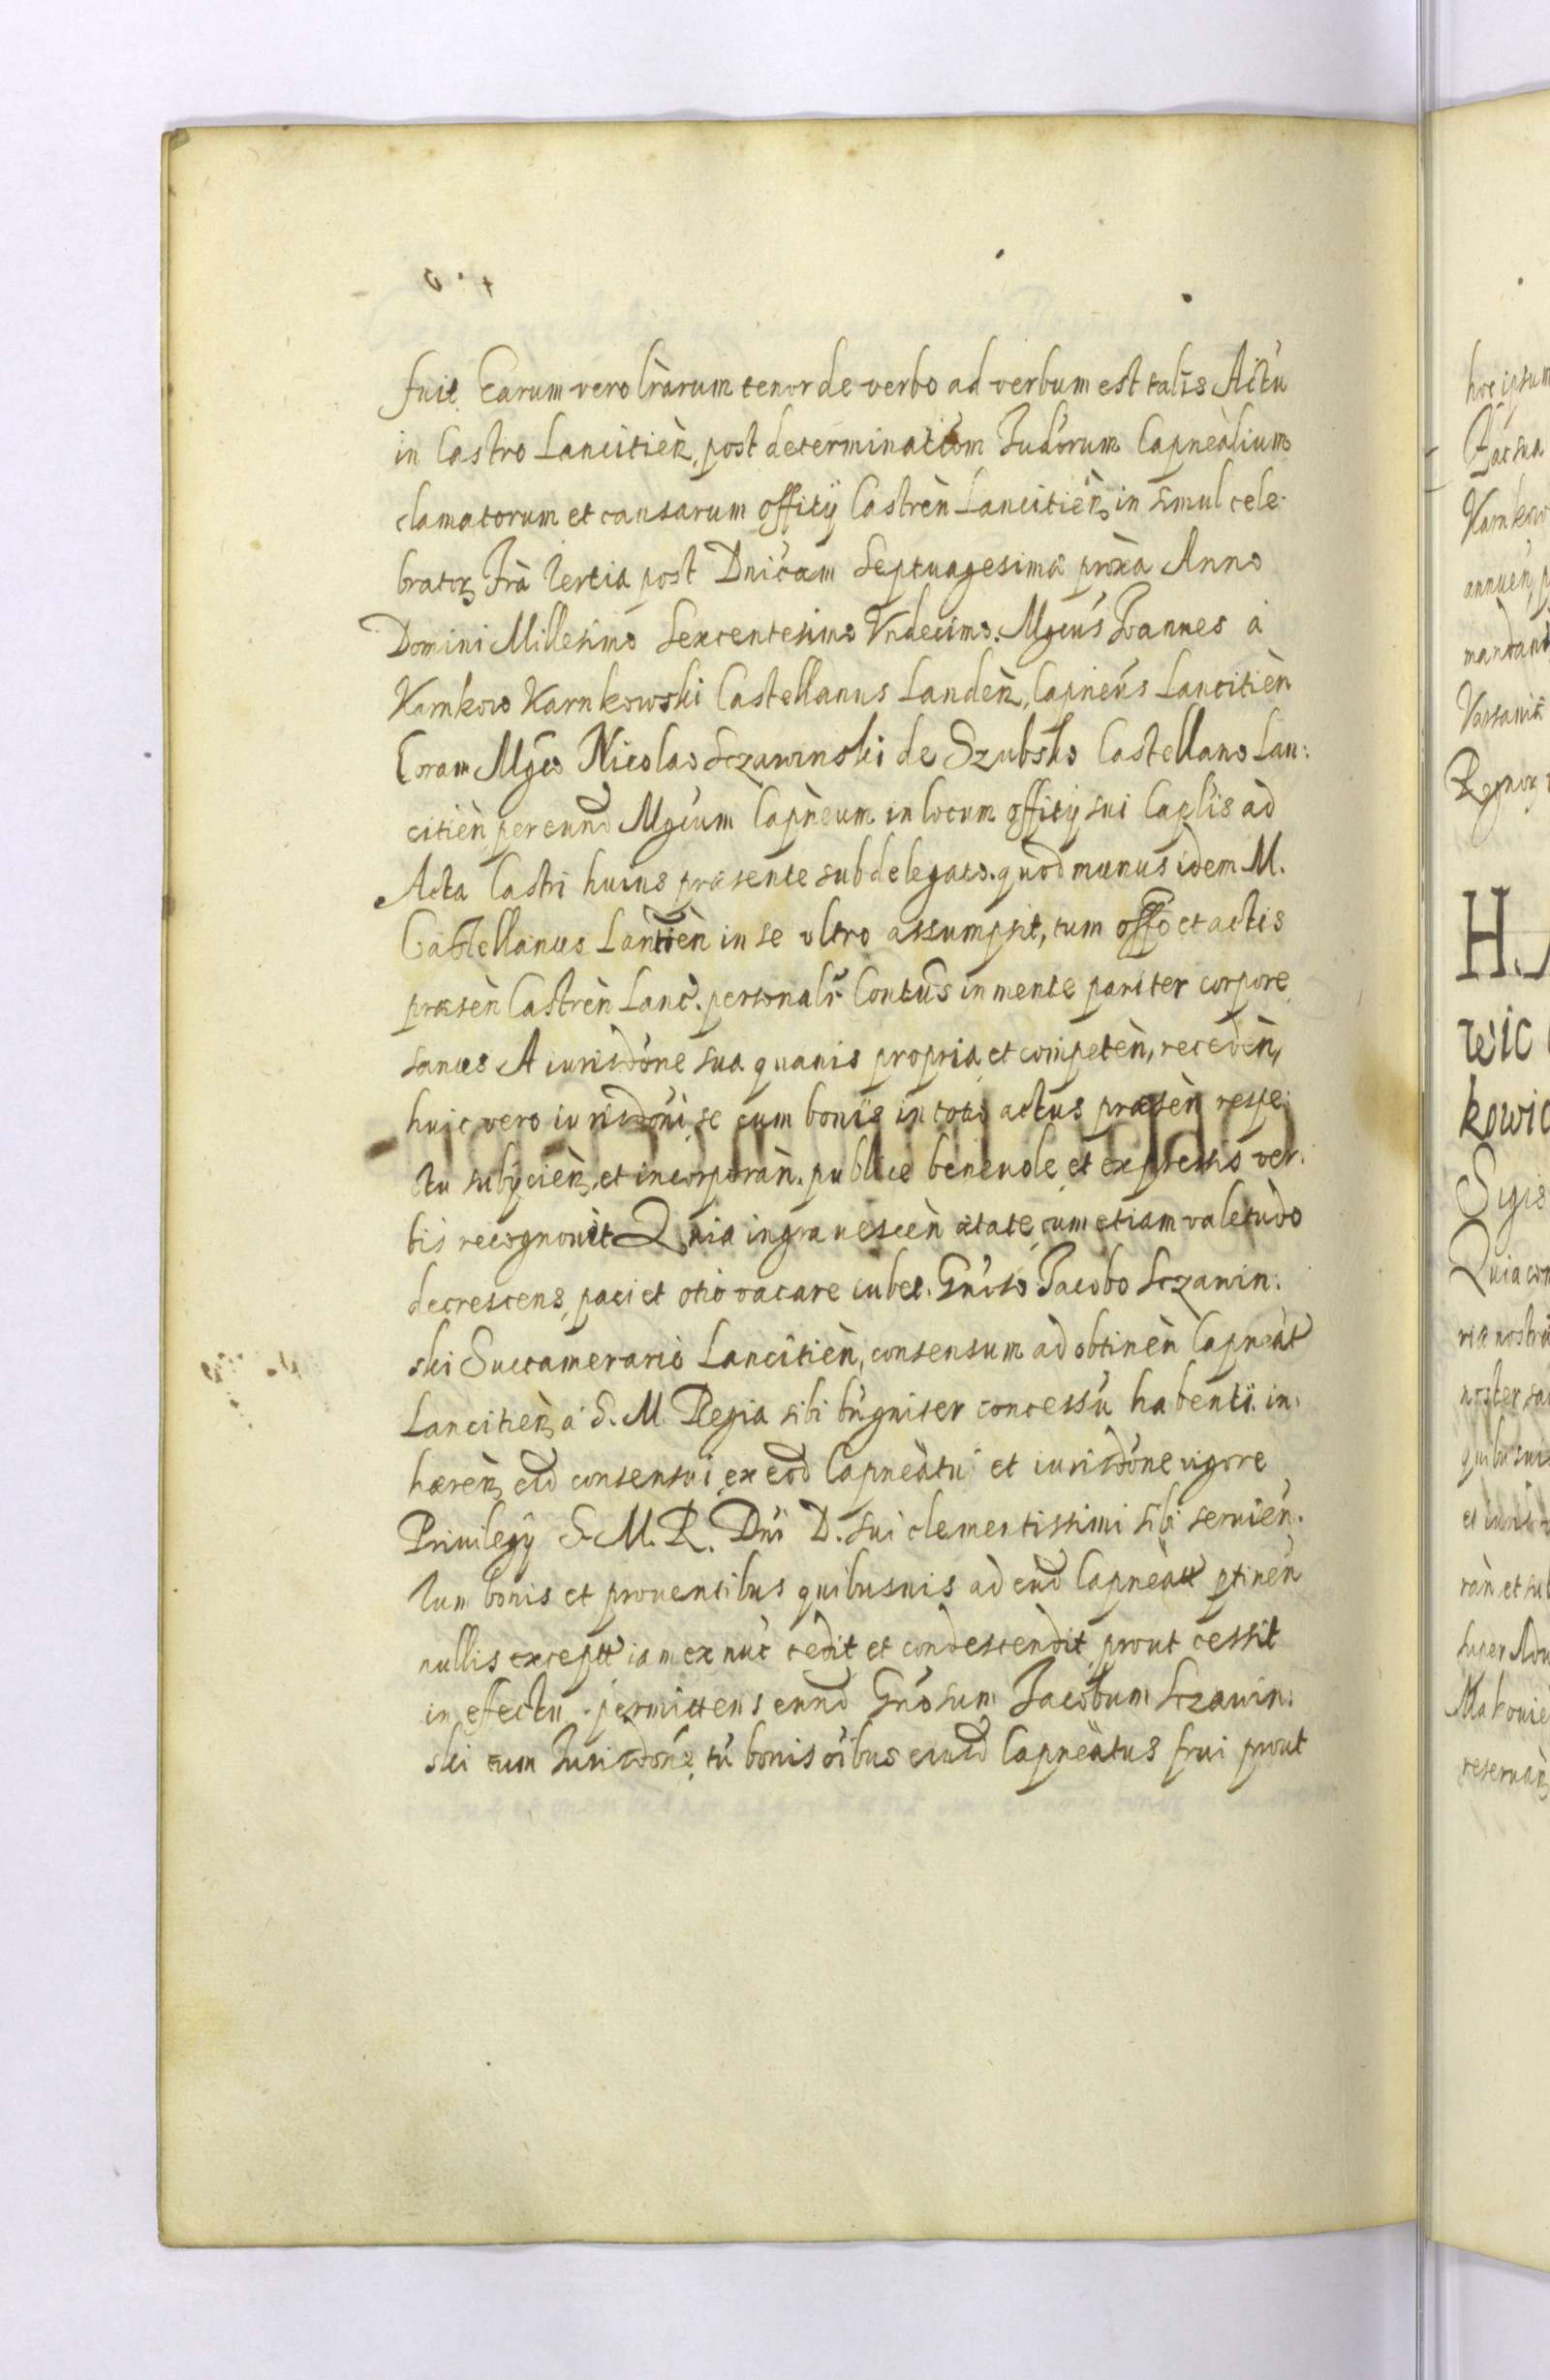 fuit. Earum vero lrarum tenor de verbo ad verbum est talis Actu
in Castro Lancitien, post determinatiom Judorum Capnealium
clamatorum et causarum offitÿ Castren Lancitien, in simul cele-
brator, Fra Tertia post Dnicam Septuagesimæ proxa Anno
Domini Millesimo Sexcentesimo Vndecimo. Mgcus Joannes a
Karnkow Karnkowski Castellanus Landen, Capneus Lancitien
Coram Mgco Nicolao Sczawinski de Szubsko Castellano Lan:
citien per eund Mgcum Capneum in locum offitÿ sui Caplis ad
Acta Castri huius præsente subdelegato. quod munus idem M.
Castellanus Lancien in se vltro assumpsit, tum offo et actis
præsen Castren Lanc. personalr Contus in mente pariter corpore
sanus A iurisdone sua quauis propria et competen, receden,
huic vero iurisdoni se cum bonis in toto actus præsen respe:
ctu subÿcien, et incorporan. publice beneuole et expressis ver:
bis recognouit Quia ingrauescen ætate, cum etiam valetudo
decrescens, paci et otio vacare iubet. Gnoso Jacobo Sczawin:
ski Succamerario Lancitien, consensum ad obtinen Capneat
Lancitien, a S. M. Regia sibi bngniter concessu habenti. in:
hæren, eid consensui, ex eod Capneatu et iurisdone vigore
Priuilegÿ S. M. R. Dni D. sui clementissimi sibi seruien.
Tum bonis et prouentibus quibusuis ad eund Capneatt ptinen
nullis exceptt iam ex nuc cedit et condescendit, prout cessit
in efectu. permittens eund Gnosum Jacobum Sczawin:
ski cum Jurisdone, tu bonis oibus eiusd Capneatus frui prout
hoc ipsum
Karnkow
annuen, p
mandant
H.
wic
kowic
Sigis
Quia con
ria nostra
noster sa
quibusuis
ran, et sub
super Adu
Makowie
reseruan,